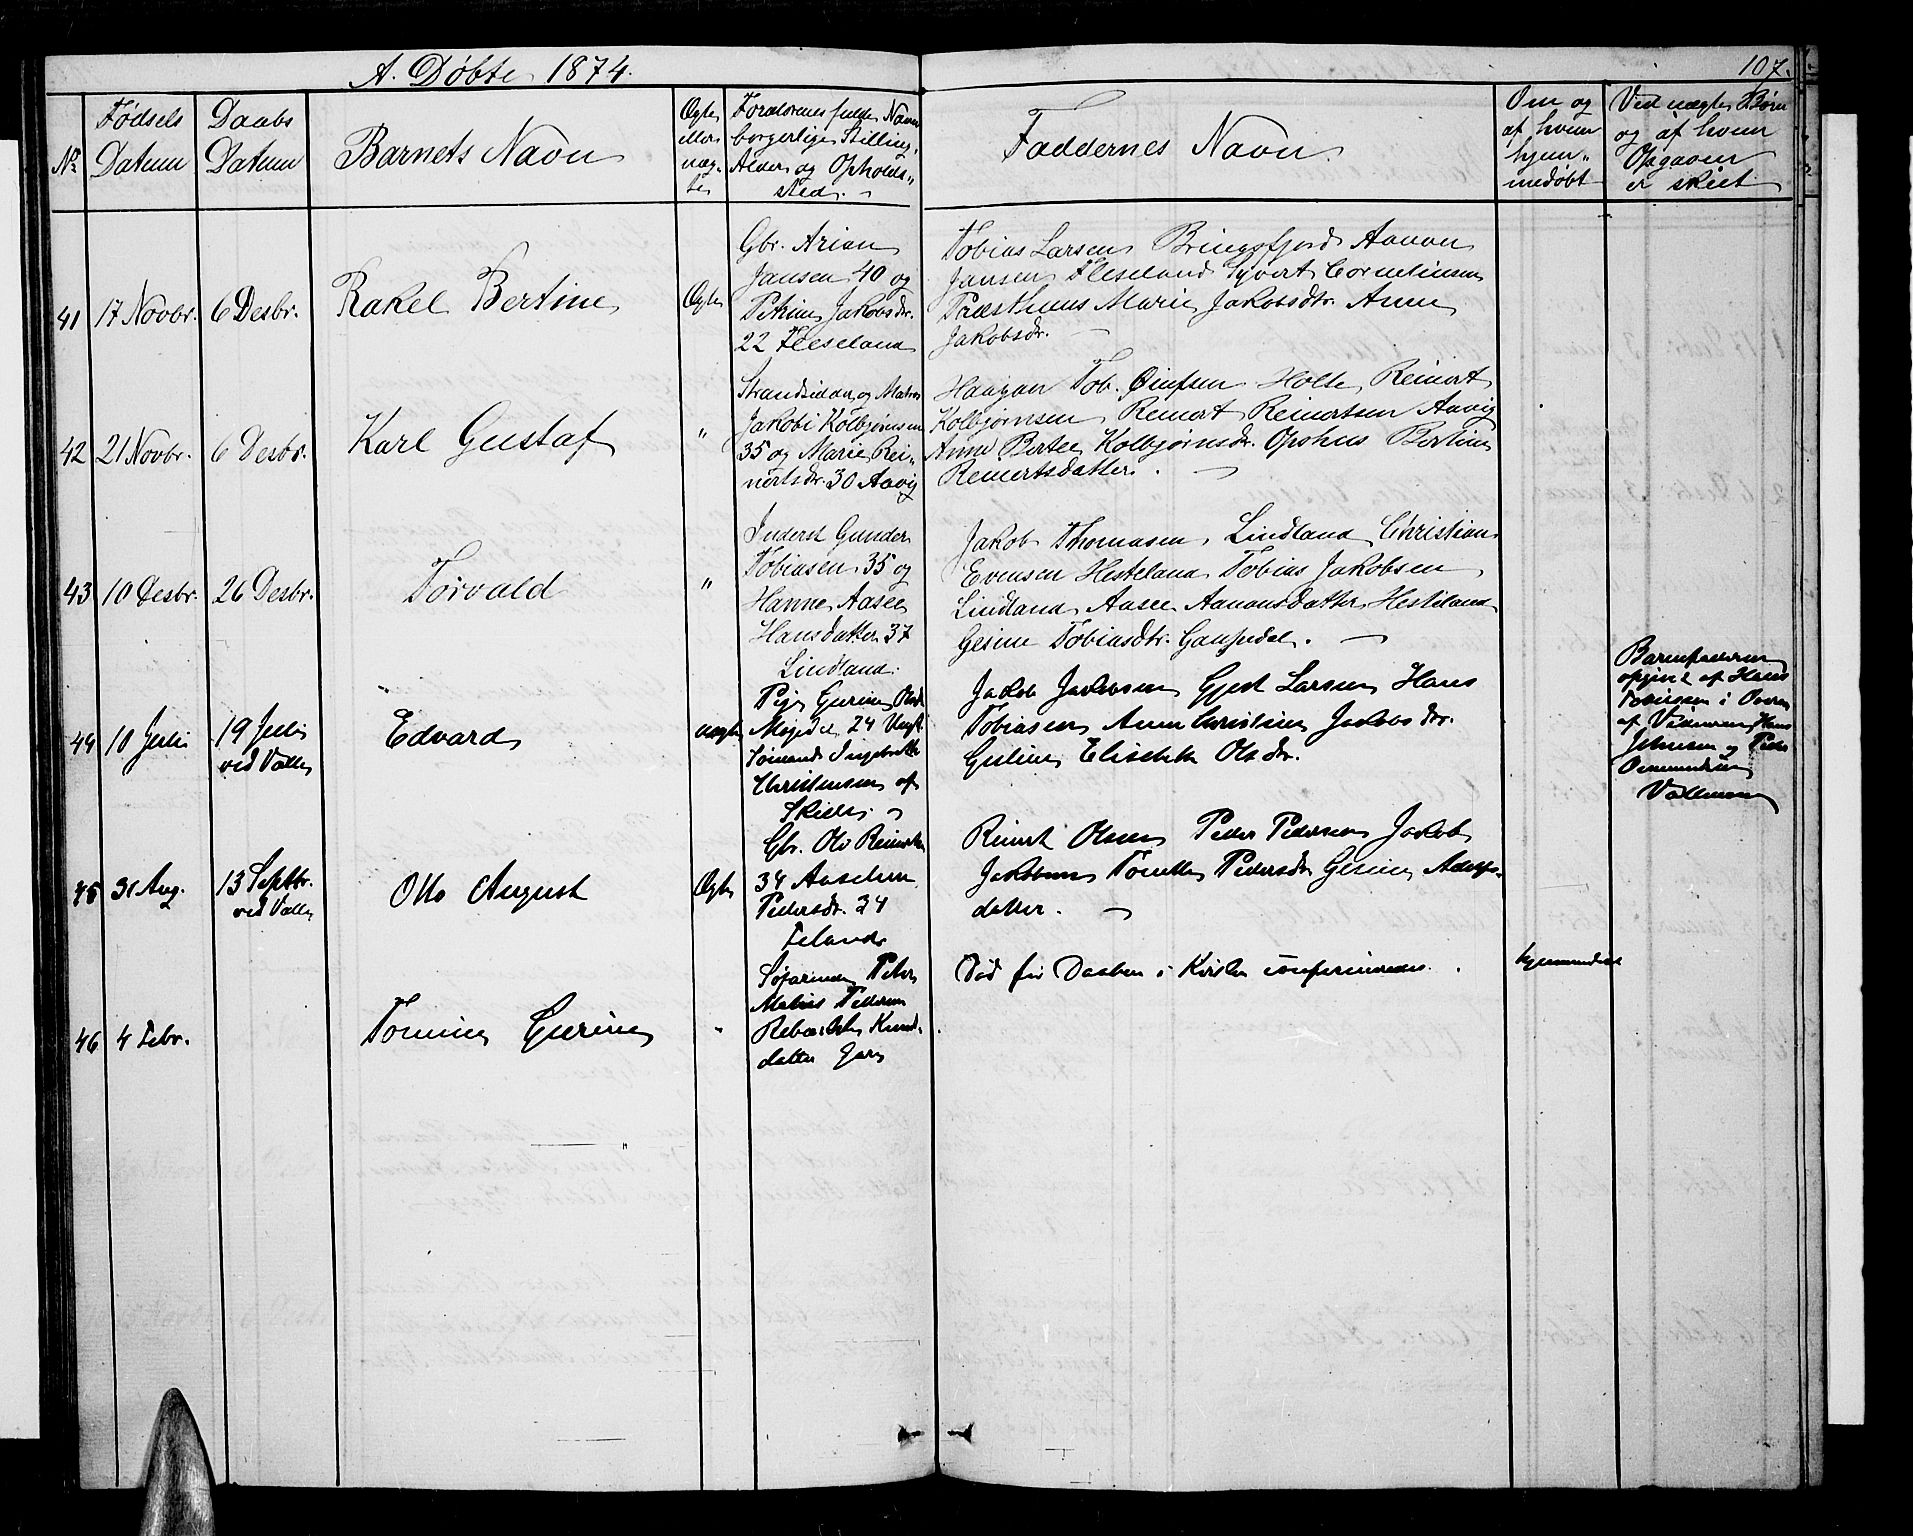 A. Døbte 1874.
107.
No
Fødsels Datum
Daabs Datum
Barnets Navn
Ægte eller uæg- te
Forældrenes fulde Navn
borgerlige Stilling,
Alder og Opholds-
sted.
Faddernes Navn.
Om og af hvem hjem- medøbt
Ved uægte Børn og af hvem Opgaven er skeet
41
17 Novbr.
6 Desbr.
Rakel Bertine
Ægte
Gbr. Arian
Jansen 40 og
Petrine Jakobsdr.
22 Fleseland
Tobias Larsen Bringsfjord Aanon
Jansen Fleseland Syvert Corneliusen
Præsthuus Marie Jakobsdtr. Anne
Jakobsdr.
42
21 Novbr.
6 Desbr.
Karl Gustaf
"
Strandsidder og Matros
Jakob Kolbjørnsen
35 og Marie Rei-
nertsdr. 30 Aavig
Haagan Tob. Holte, Reinert
Kolbjørnsen, Reinert Reinertsen Aavig
Anne Kolbjørnsdr. Opshus Bertine
Reinertsdatter.
43
10 Desbr.
26 Desbr.
Torvald
"
Inderst Gunder
Tobiasen 35 og
Hanne Aasee
Hansdatter 37
Lindland.
Jakob Thomasen, Lindland, Christian
Evensen Hesteland, Tobias Jakobsen
Lindland, Aasee Aanonsdatter Hesteland
Gesine Tobiasdtr. Gausdal.
44
10 Juli
19 Juli
ved Valle
Edvard
uægte
Pige Gurine
24 Ungk.
Sømand
Christensen af
Jacob Jacobsen Gjert Larsen Hans
Tobiasen Anne Christine Jacobsdr.
Guline Elisabeth Olsdr.
Barnefaderen
opgivet af Hans
Tobiasen i
af Hans
Johnsen og Peder
Osmundsen
45
31 Aug.
13 Septbr.
ved Valle
Otto August
Ægte
Gbr. Ole Reinertsen
34
Pedersdr. 34
Reinert Olsen Peder Pedersen Jakob
Jakobsen Tonette Pedersdr Gesine Adolfs-
datter.
46
4 Febr.
Tomine Gurine
"
Peter
Matias Pedersen
Knuds-
datter
Død før Daaben i Kirken
hjemmedøbt